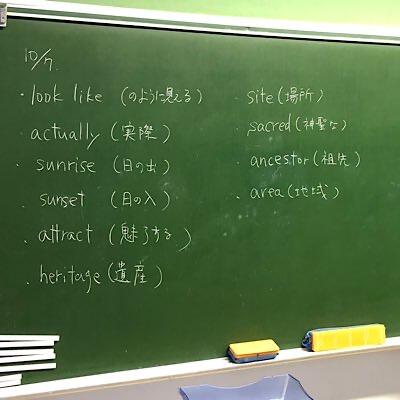 10/7.
・look like (のように見える)
・actually (実際)
・sunrise (日の出)
・sunset (日の入)
・attract (魅了する)
・heritage (遺産)
・site (場所)
・sacred (神聖な)
・ancestor (祖先)
・area (地域)